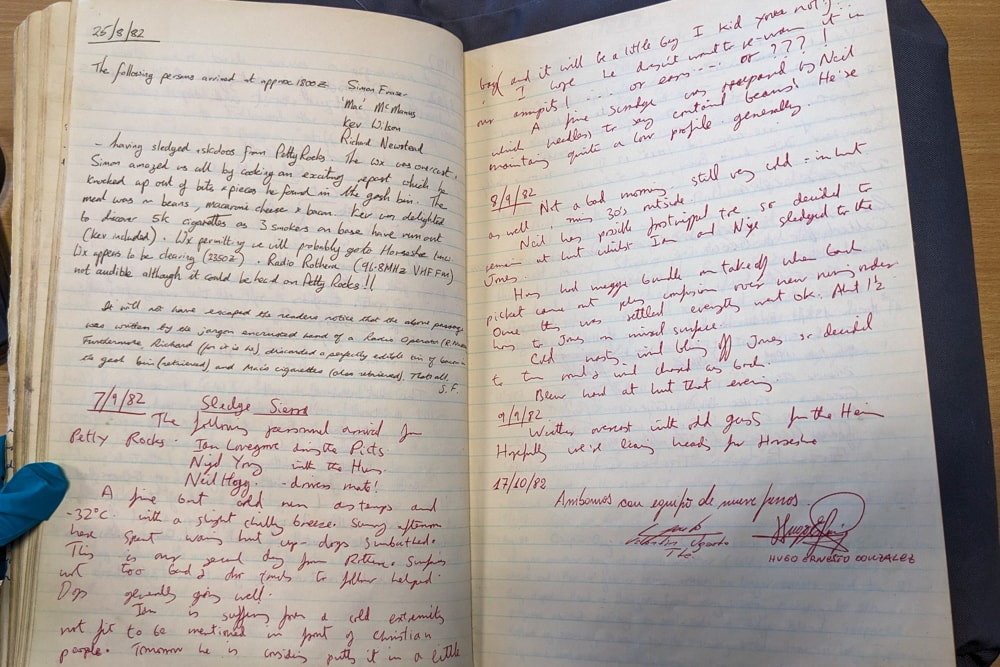 25/8/82
The following persons arrived at approx 1800Z Simon Fraser
'Mac' McManus
Kev Wilson
Richard Newstead
- having sledged + skidoos from Petty Rocks. The wx was overcast.
Simon amazed us all by cooking an exciting repast which he
knocked up out of bits + pieces he found in the gash bin. The
meal was ~ beans, macaroni cheese + bacon. Kev was delighted
to discover 5k cigarettes as 3 smokers on base have run out
(Kev included). Wx permitting we will probably go to Horseshoe
Wx appears to be clearing (2350Z). Radio Rothera (96.8MHz VHF Fm)
not audible although it could be heard on Petty Rocks!!
It will not have escaped the readers notice that the above passage
was written by the jargon encrusted hand of a Radio Operator
Furthermore Richard (for it is he) discarded a perfectly edible tin of bacon in
the gash bin (retrieved) and Mac's cigarettes (also retrieved). That's all.
S.F.
7/9/82 Sledge Sierra
The following personnel arrived from
Petty Rocks. Ian Lovegrove driving the Picts
Nigel Young with the Huns
Neil Hogg. - drivers mate!
A fine but cold run as temps and
-32°C with a slight chilly breeze. Sunny afternoon
here spent warming hut up - dogs sunbathed.
This is our second day from Rothera. Surfaces
not too bad & ski tracks to follow helped.
Dogs generally going well.
Ian is suffering from a cold extremity
not fit to be mentioned in front of christian
people. Tomorrow he is considering putting it in a little
bag and it will be a little bag I kid you not!
I hope he doesn't want to re-warm it in
our armpits! .... or ears .... or ???!
A fine scradge was prepared by Neil
which needless to say contained beans! He's
maintaining quite a low profile generally
8/9/82 Not a bad morning still very cold - in hut
as well, minus 30's outside
Neil has possible frostnipped toe so decided to
remain at hut whilst Ian and Nige sledged to the
Jones.
Huns had megga bundle on take off when back
picket came out plus confusion over new running order
Once this was settled everything went ok. About 1½
hours to Jones on mixed surface.
Cold nasty wind blowing off Jones so decided
to turn round and chased us back.
Blew hard at hut that evening
9/9/82
Weather overcast with odd gusts from the Heim
Hopefully we're leaving heading for Horseshoe
17/10/82
Ambamos con equipo de nueve perros
HUGO ERNESTO GONZALEZ